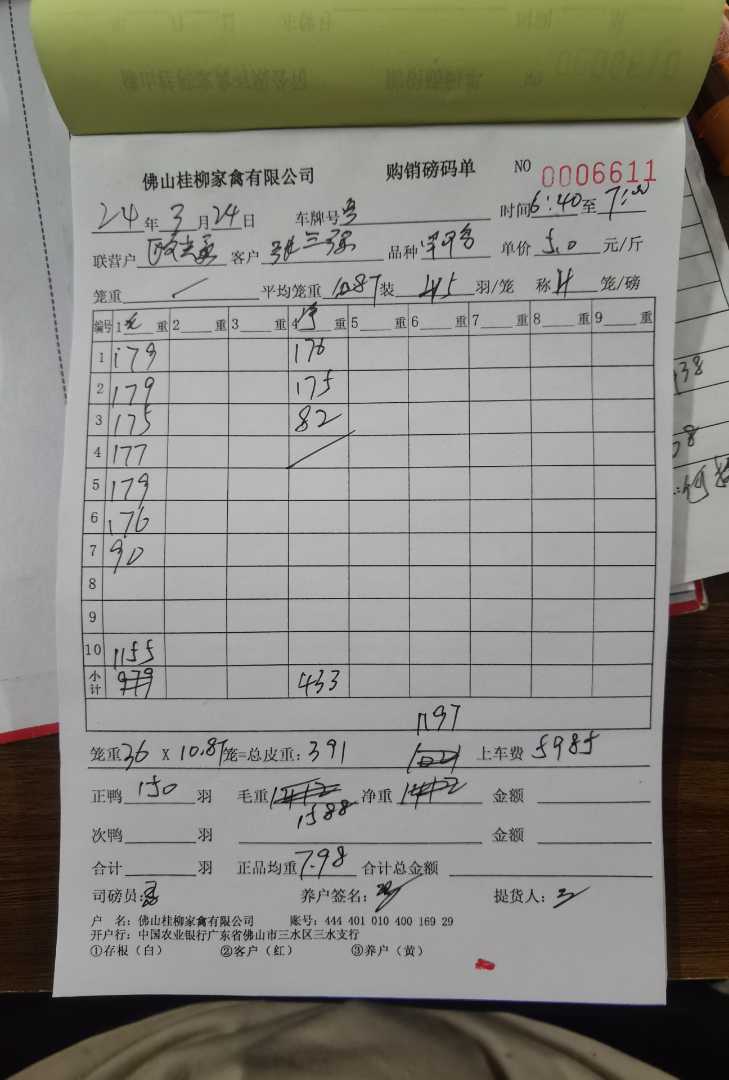 佛山桂柳家禽有限公司 购销磅码单 NO 0006611
24年3月24日 车牌号 时间6:40至7:00
联营户 客户 张三强 品种 单价 5.0 元/斤
笼重 / 平均笼重 10.87 装 羽/笼 称 4 笼/磅
编号 1 毛 重 2 重 3 重 4 净 重 5 重 6 重 7 重 8 重 9 重
1 179 176
2 179 175
3 175 82
4 177
5 179
6 176
7 90
8
9
10 1155
小计 979 433
1197
笼重 36 X 10.87 笼=总皮重: 391 上车费 5985
正鸭 150 羽 毛重 1412 净重 1412 金额
1588
次鸭 羽 金额
合计 羽 正品均重 7.98 合计总金额
司磅员: 养户签名: 提货人:
户 名: 佛山桂柳家禽有限公司 账号: 444 401 010 400 169 29
开户行: 中国农业银行广东省佛山市三水区三水支行
①存根（白） ②客户（红） ③养户（黄）